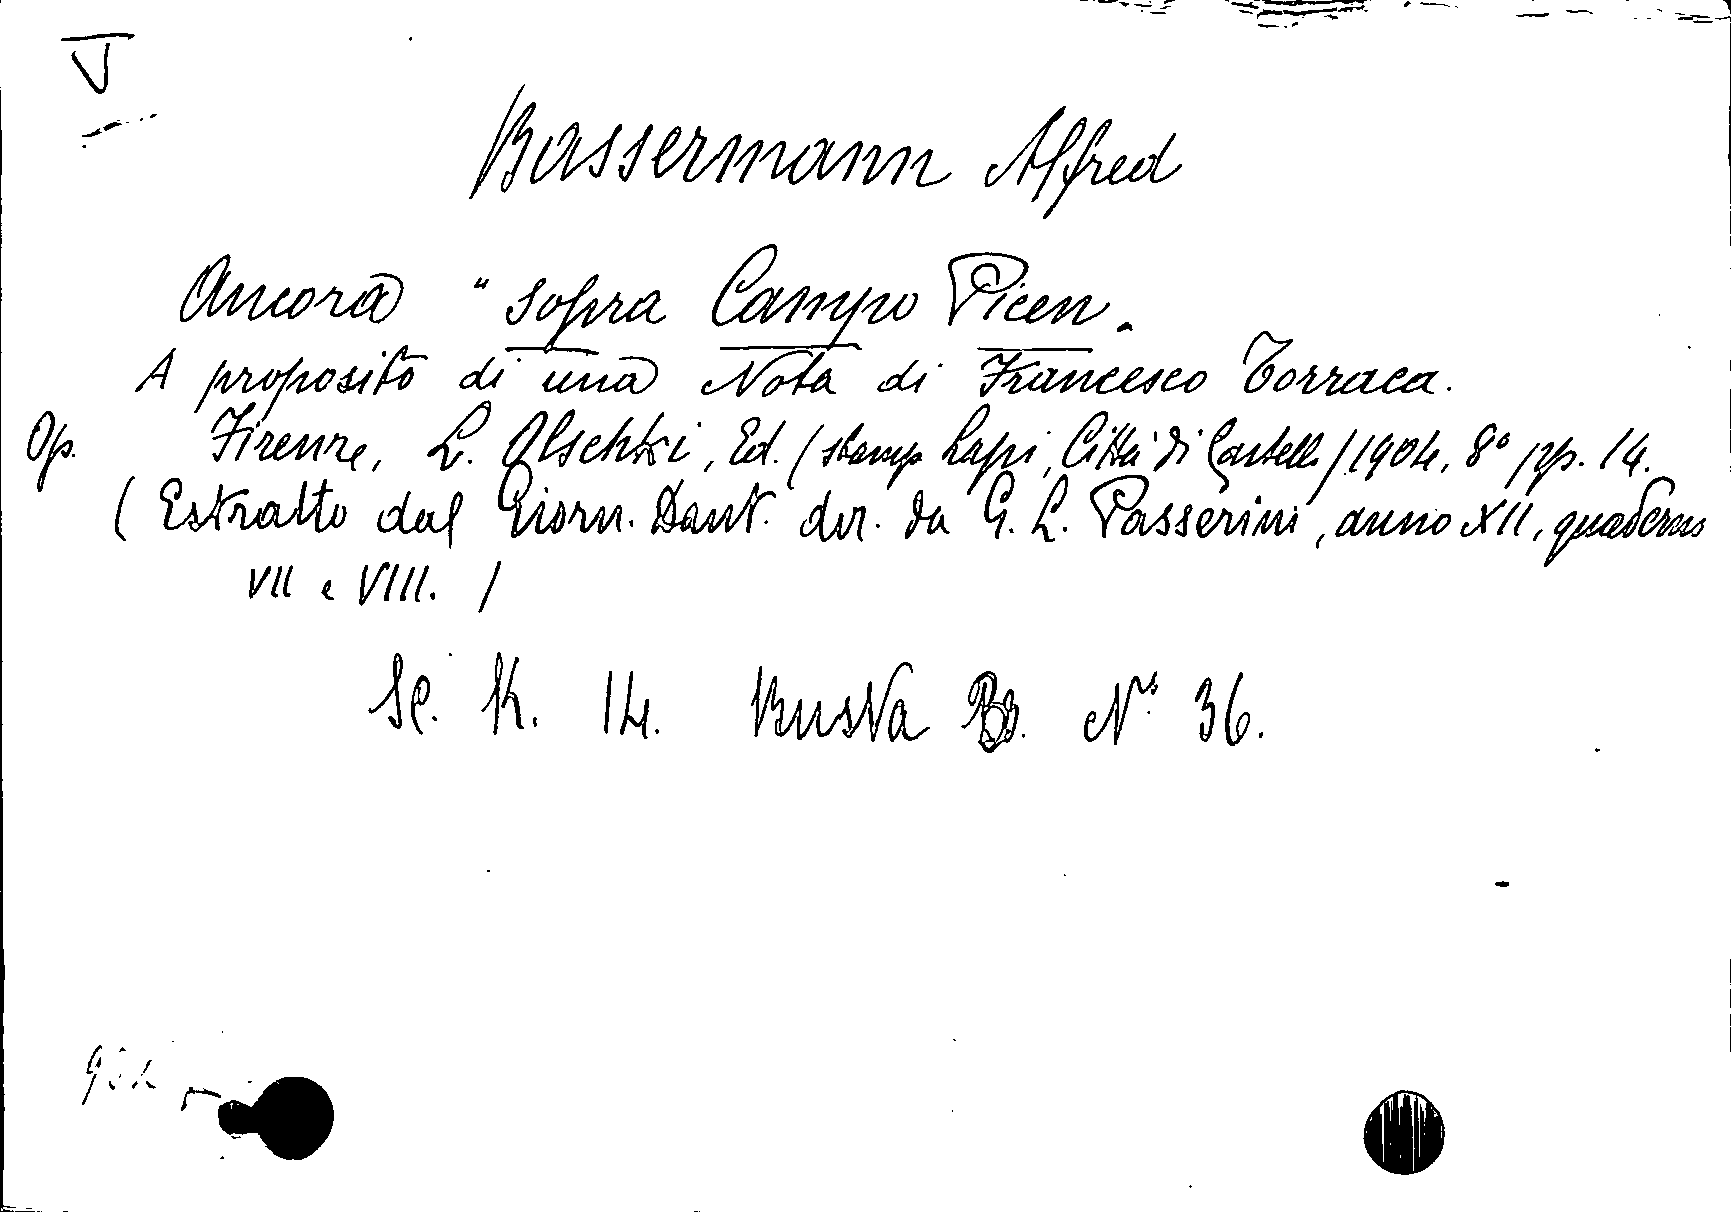 V
Bassermann Alfred
Ancora "sopra Campo Picen.
A proposito di una Nota di Francesco Torraca.
Op. Firenze, L. Olschki, Ed. (stamp Lapi, Città di Castello) 1904, 8° pp. 14.
(Estratto dal Giorn. Dant. dir. da G. L. Passerini, anno XII, quaderno
VII e VIII. )
Sc. K. 14. Busta B. N° 36.